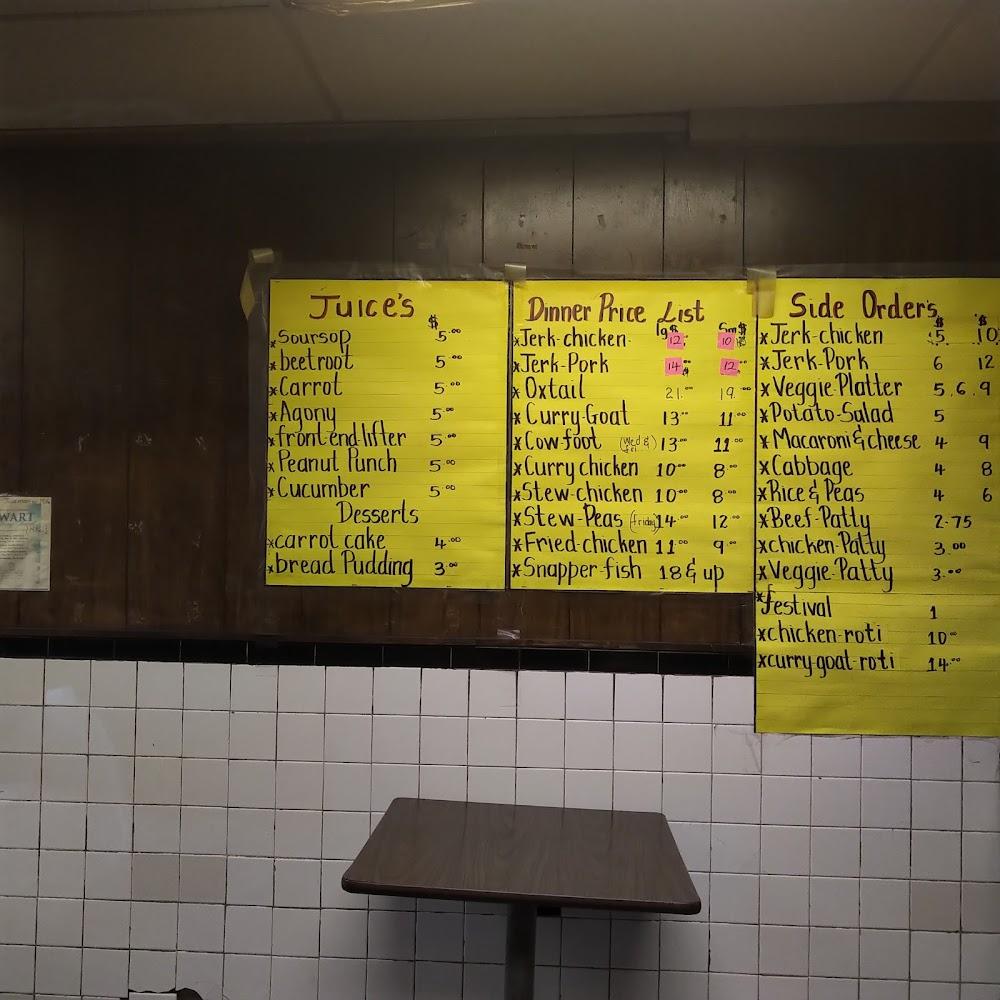 WART
Juice's
$
*Soursop 5.00
*beetroot 5.00
*Carrot 5.00
*Agony 5.00
*front-end-lifter 5.00
*Peanut Punch 5.00
*Cucumber 5.00
Desserts
*carrot cake 4.00
*bread Pudding 3.00
Dinner Price List
lg$ Sm$
*Jerk-chicken- 12 10
*Jerk-Pork 14 12
*Oxtail 21.00 19.00
*Curry-Goat 13.00 11.00
*Cow foot (Wed & fri) 13.00 11.00
*Curry chicken 10.00 8.00
*Stew-chicken 10.00 8.00
*Stew-Peas (friday) 14.00 12.00
*Fried-chicken 11.00 9.00
*Snapper-fish 18 & up
Side Order's
$ $
*Jerk-chicken 5. 10
*Jerk-Pork 6 12
*Veggie-Platter 5,6,9
*Potato-Salad 5
*Macaroni & cheese 4 9
*Cabbage 4 8
*Rice & Peas 4 6
*Beef-Patty 2.75
*chicken-Patty 3.00
*Veggie-Patty 3.00
*festival 1
*chicken-roti 10.00
*curry-goat-roti 14.00